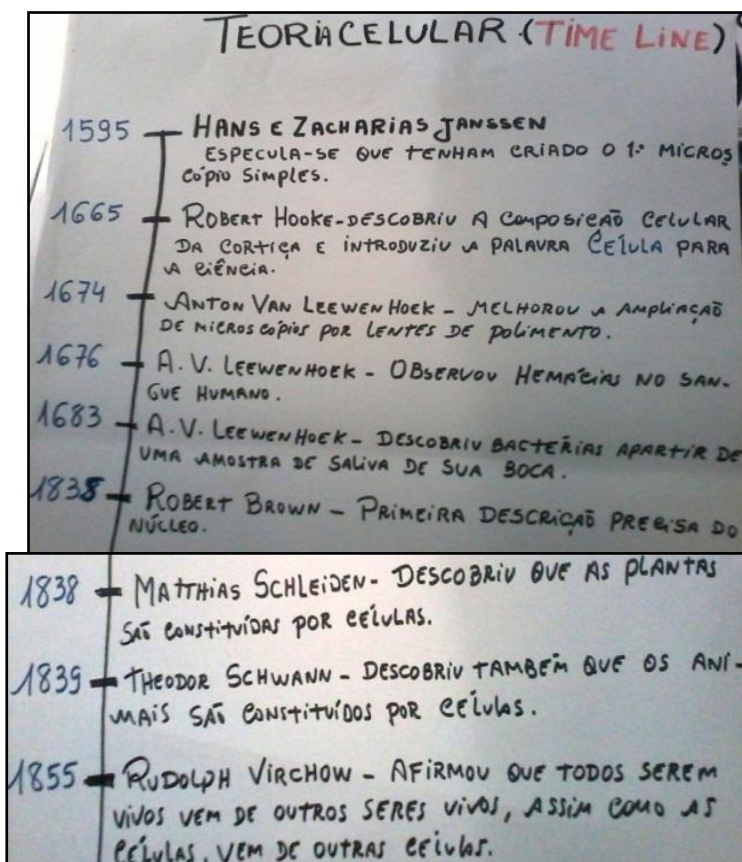 TEORIA CELULAR (TIME LINE)
1595 HANS E ZACHARIAS JANSSEN
ESPECULA-SE QUE TENHAM CRIADO O 1º MICROS
CÓPIO SIMPLES.
1665 ROBERT HOOKE-DESCOBRIU A COMPOSICÃO CELULAR
DA CORTIÇA E INTRODUZIU A PALAVRA CÉLULA PARA
A CIÊNCIA.
1674 ANTON VAN LEEWENHOEK - MELHOROU A AMPLIAÇÃO
DE MICROSCÓPIOS POR LENTES DE POLIMENTO.
1676 A.V. LEEWENHOEK - OBSERVOU HEMÁCIAS NO SAN-
GUE HUMANO.
1683 A.V. LEEWENHOEK - DESCOBRIU BACTÉRIAS APARTIR DE
UMA AMOSTRA DE SALIVA DE SUA BOCA.
1838 ROBERT BROWN - PRIMEIRA DESCRIÇÃO PRECISA DO
NÚCLEO.
1838 MATTHIAS SCHLEIDEN - DESCOBRIU QUE AS PLANTAS
SÃO CONSTITUÍDAS POR CÉLULAS.
1839 THEODOR SCHWANN - DESCOBRIU TAMBÉM QUE OS ANI-
MAIS SÃO CONSTITUÍDOS POR CÉLULAS.
1855 RUDOLPH VIRCHOW - AFIRMOU QUE TODOS SEREM
VIVOS VEM DE OUTROS SERES VIVOS, ASSIM COMO AS
CÉLULAS, VEM DE OUTRAS CÉLULAS.